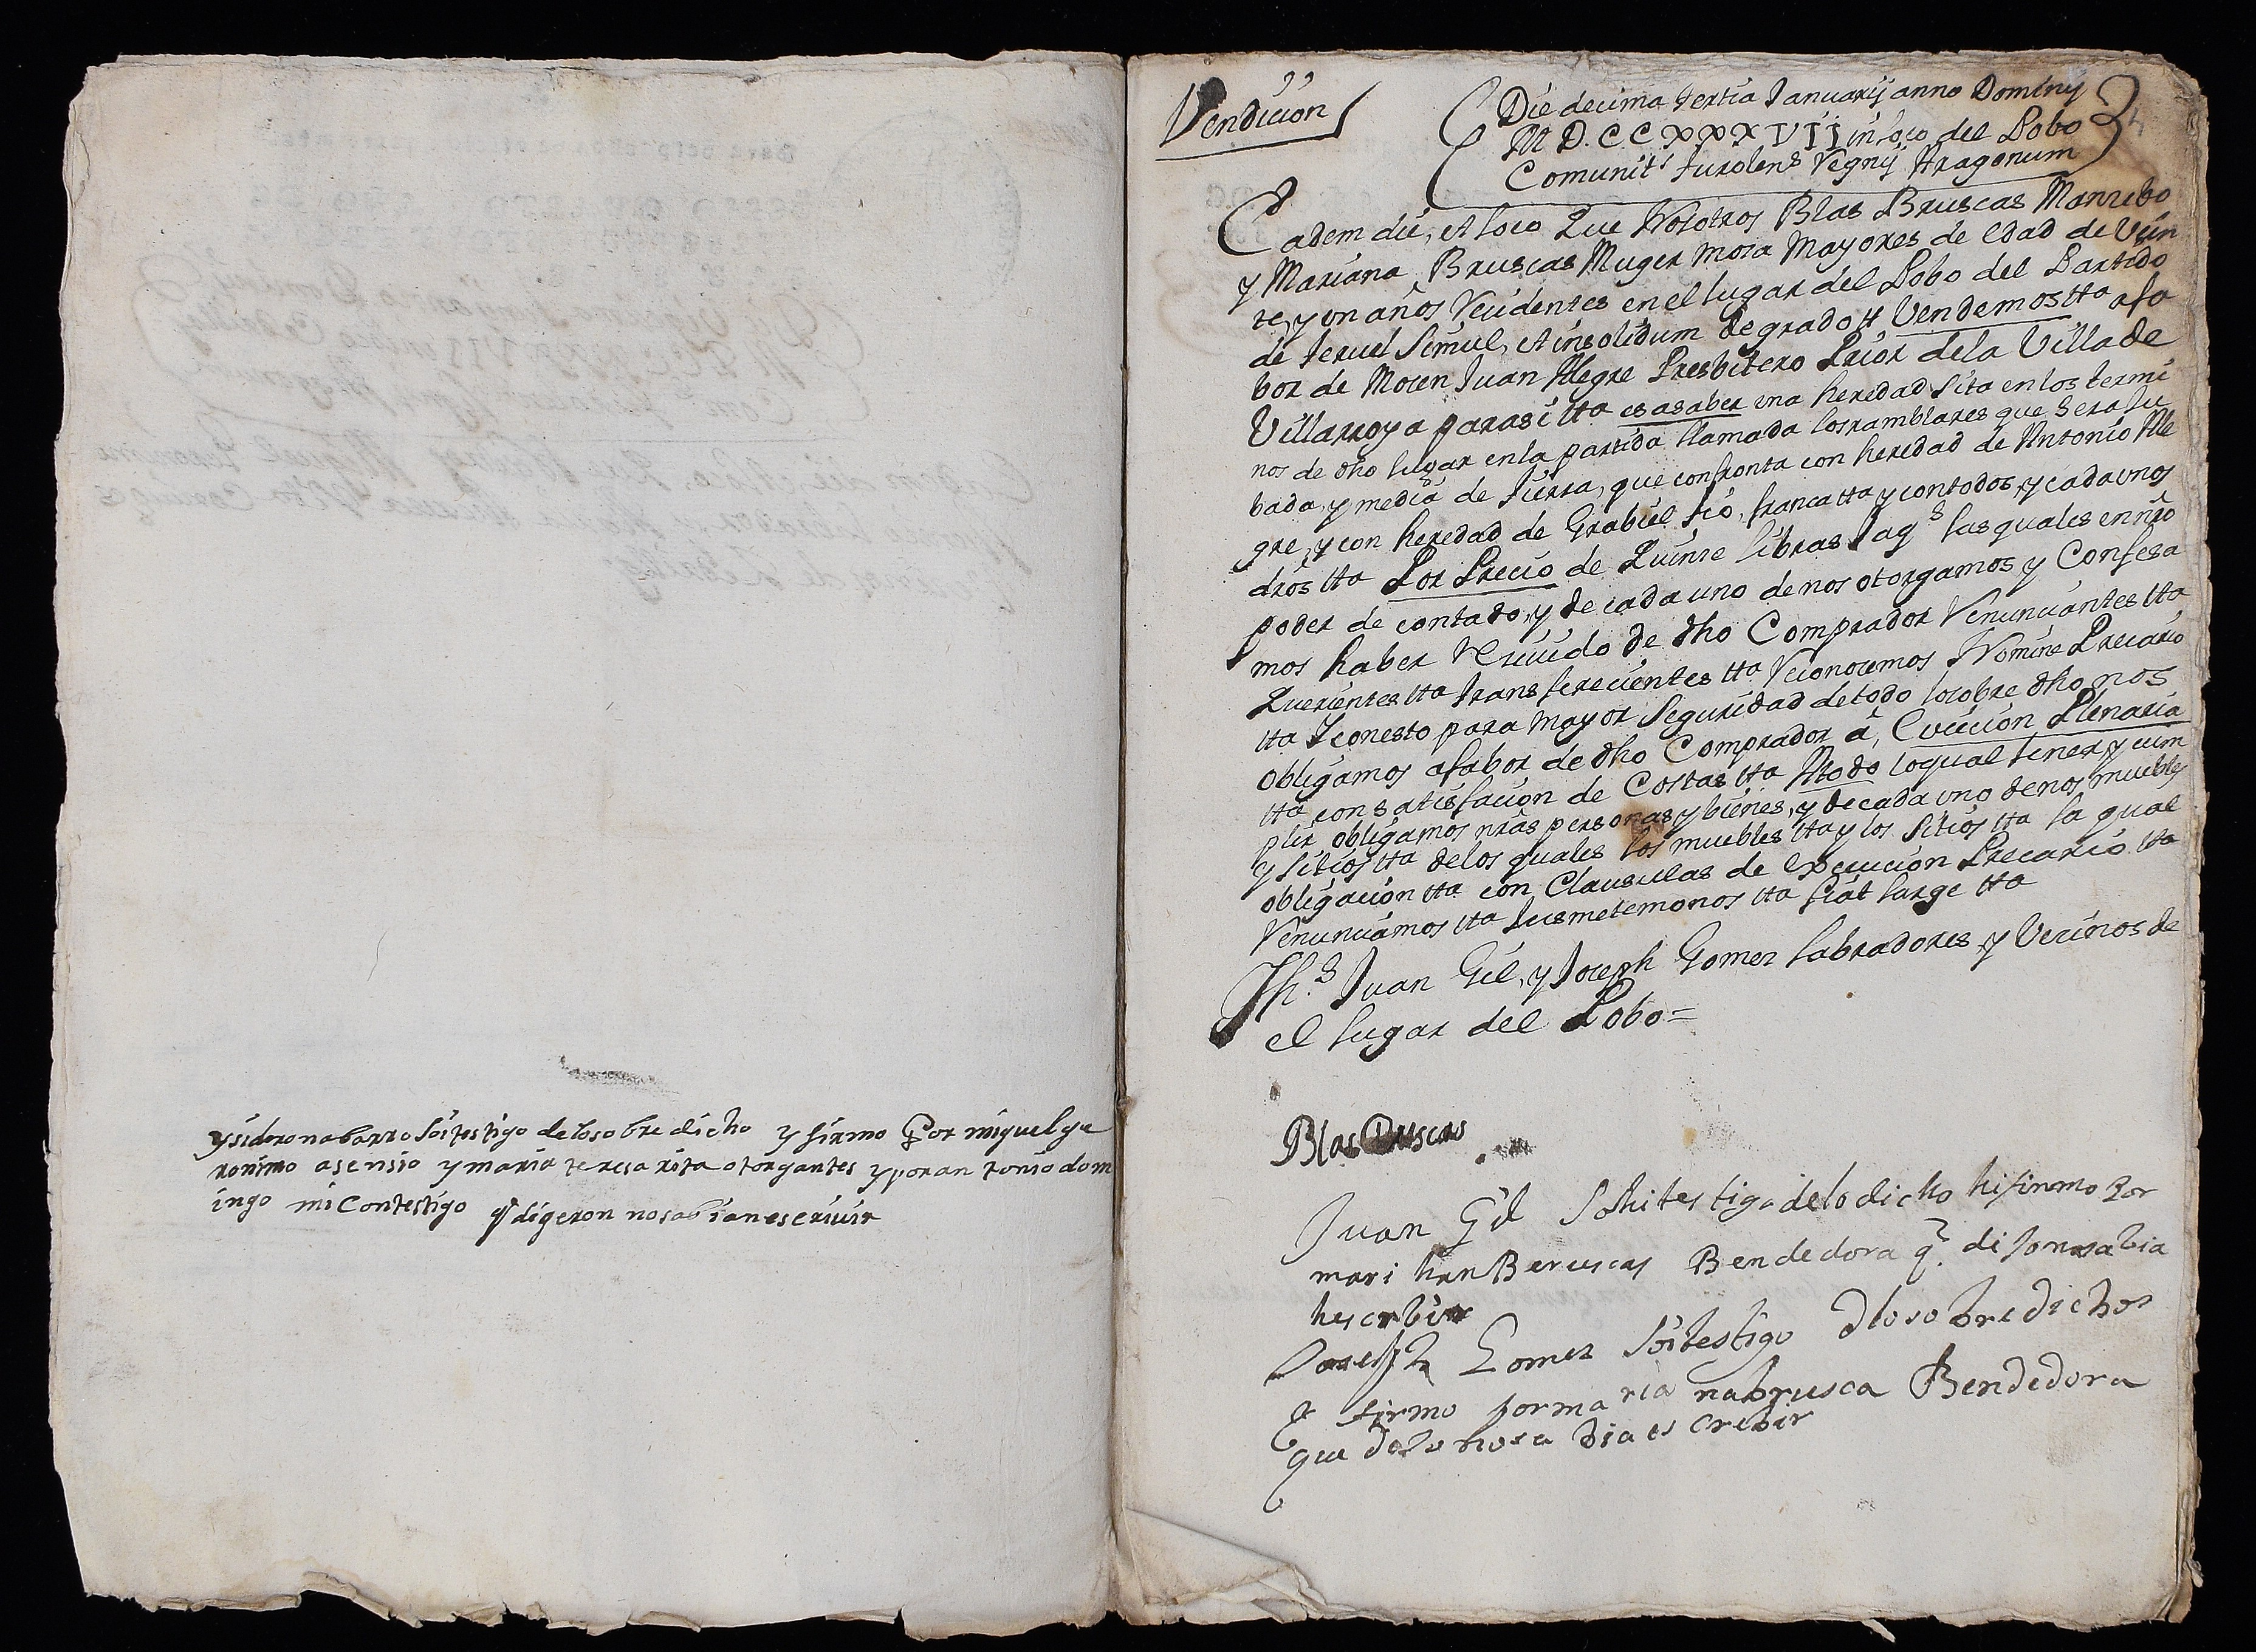 ysidro nabarro soi testigo de lo sobre dicho y firmo Por miguel ge
ronimo asensio y maria teresa rita otorgantes y por an tonio dom
ingo mi Contestigo q digeron no sabian escriuir
Vendicion
Die decima tertia Januarij anno Dominy
M D. C C X X X V I J in loco del Pobo
Comunit.s Turolens Regnij Aragonum
Eadem die, et loco Que Nosotros Blas Bruscas Manzebo
y Mariana Bruscas Muger moza Mayores de edad de Vein
te, y un años Residentes en el lugar del Pobo del Partido
de Teruel Simul, et insolidum de grado tt Vendemos tta afa
bor de Mosen Juan Alegre Presbitero Prior dela Villa de
Villarroya para si tta es a saber una heredad sita en los termi
nos de dho lugar en la partida llamada los ramblares que sera su
bada, y media de tierra, que confronta con heredad de Antonio Ale
gre, y con heredad de Grabiel Tio, franca tta y con todos, y cada unos
dros tta Por Precio de Quinze libras Jaq.s las quales en nro
poder de contado, y de cada uno de nos otorgamos y Confesa
mos haber Reciuido de dho Comprador Renunciantes tta
Querientes tta transferecientes tta Reconozemos Nomine Precario
tta I con esto para mayor Seguridad de todo lo sobre dho nos
obligamos afabor de dho Comprador á, Eviccion Plenaria
tta con satisfacion de Costas tta Atodo lo qual tener, y cum
plir obligamos nras personas y bienes, y de cada uno de nos muebles
y sitios tta delos quales los muebles tta y los sitios tta la qual
obligacion tta con Clausulas de execucion Precario tta
Renunciamos tta Jusmetemonos tta fiat large tta
Th.s Juan Gil, y Joseph Gomez labradores, y Vecinos de
el lugar del Pobo =
Blas Bruscas
Juan Gil Sohi tes tigo de lo dicho hi firmo Por
mari han Beruscas Bendedora q. di jo no sabia
hes crbir
Joseph Gomez soi testigo d lo so bre dichos
E firmo por ma ria na brusca Bendedora
que dijo no sa bia es crebir